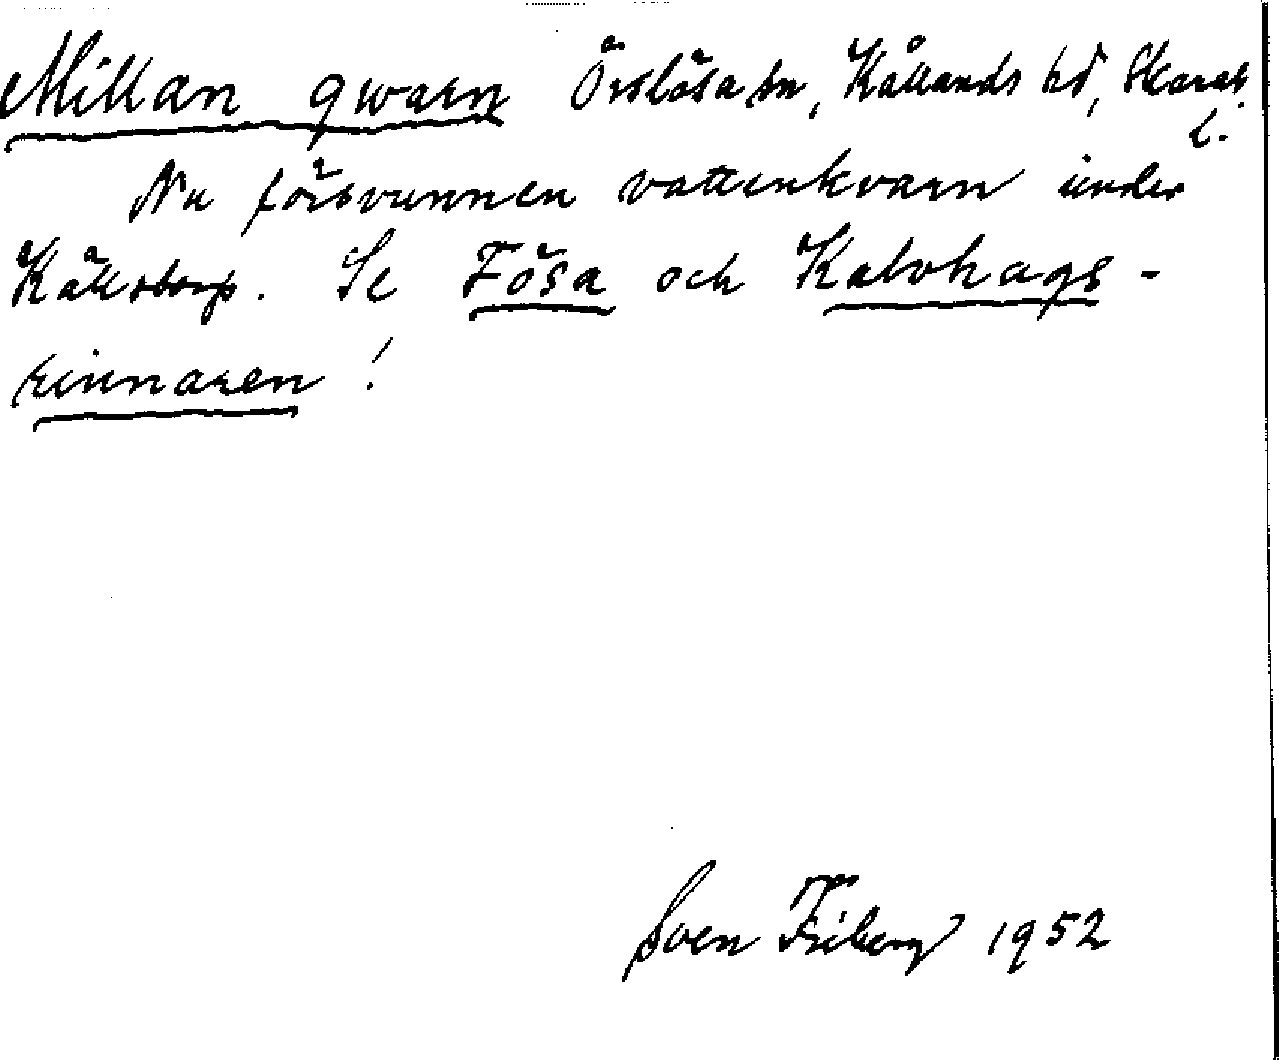 Millan qwarn Örslösa sn, Kållands hd, Skarab.
l.
Nu försvunnen vattenkvarn under
Källstorp. Se Fösa och Kalvhags-
rinnaren!
Sven Friberg 1952